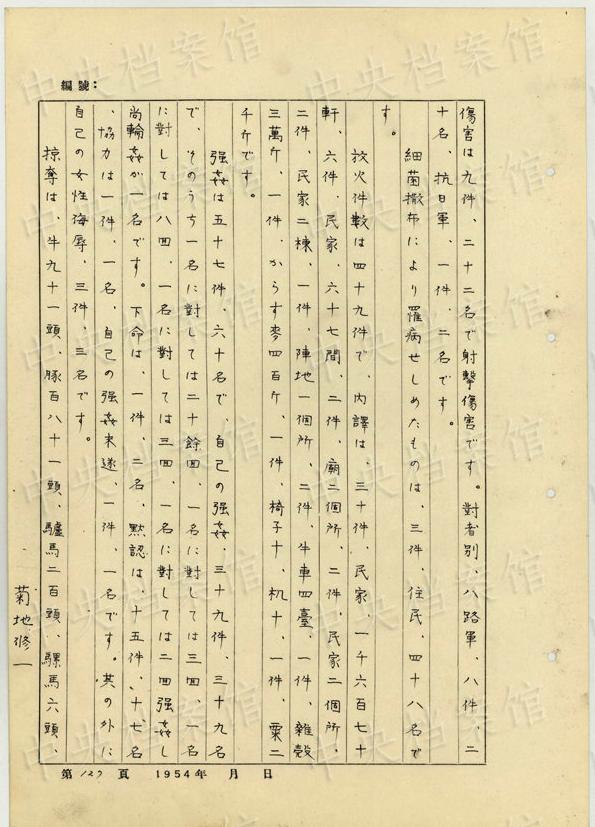 編號:
傷害は九件、二十二名で射撃傷害です。對者別、八路軍、八件、二
十名、抗日軍、一件、二名です。
細菌撒布により罹病せしめたものは、三件、住民、四十八名で
す。
放火件数は四十九件で、内譯は、三十件、民家、一千六百七十
軒、六件、民家、六十七間、二件、廟二個所、二件、民家二個所、
二件、民家二棟、一件、陣地一個所、二件、牛車四臺、一件、雑穀
三萬斤、一件、からす麥四百斤、一件、椅子十、机十、一件、粟二
千斤です。
强姦は五十七件、六十名で、自己の强姦、三十九件、三十九名
で、そのうち一名に対しては二十餘回、一名に対しては三回、一名
に對しては八回、一名に對しては三回、一名に對しては二回强姦し
尚輪姦が一名です。下命は、一件、二名、黙認は、十五件、十七名
、協力は一件、一名、自己の强姦未遂、一件、一名です。其の外に
自己の女性侮辱、三件、三名です。
掠奪は、牛九十一頭、豚百八十一頭、驢馬二百頭、騾馬六頭、
菊地修一
第 127 頁 1954年 月 日
中央档案馆